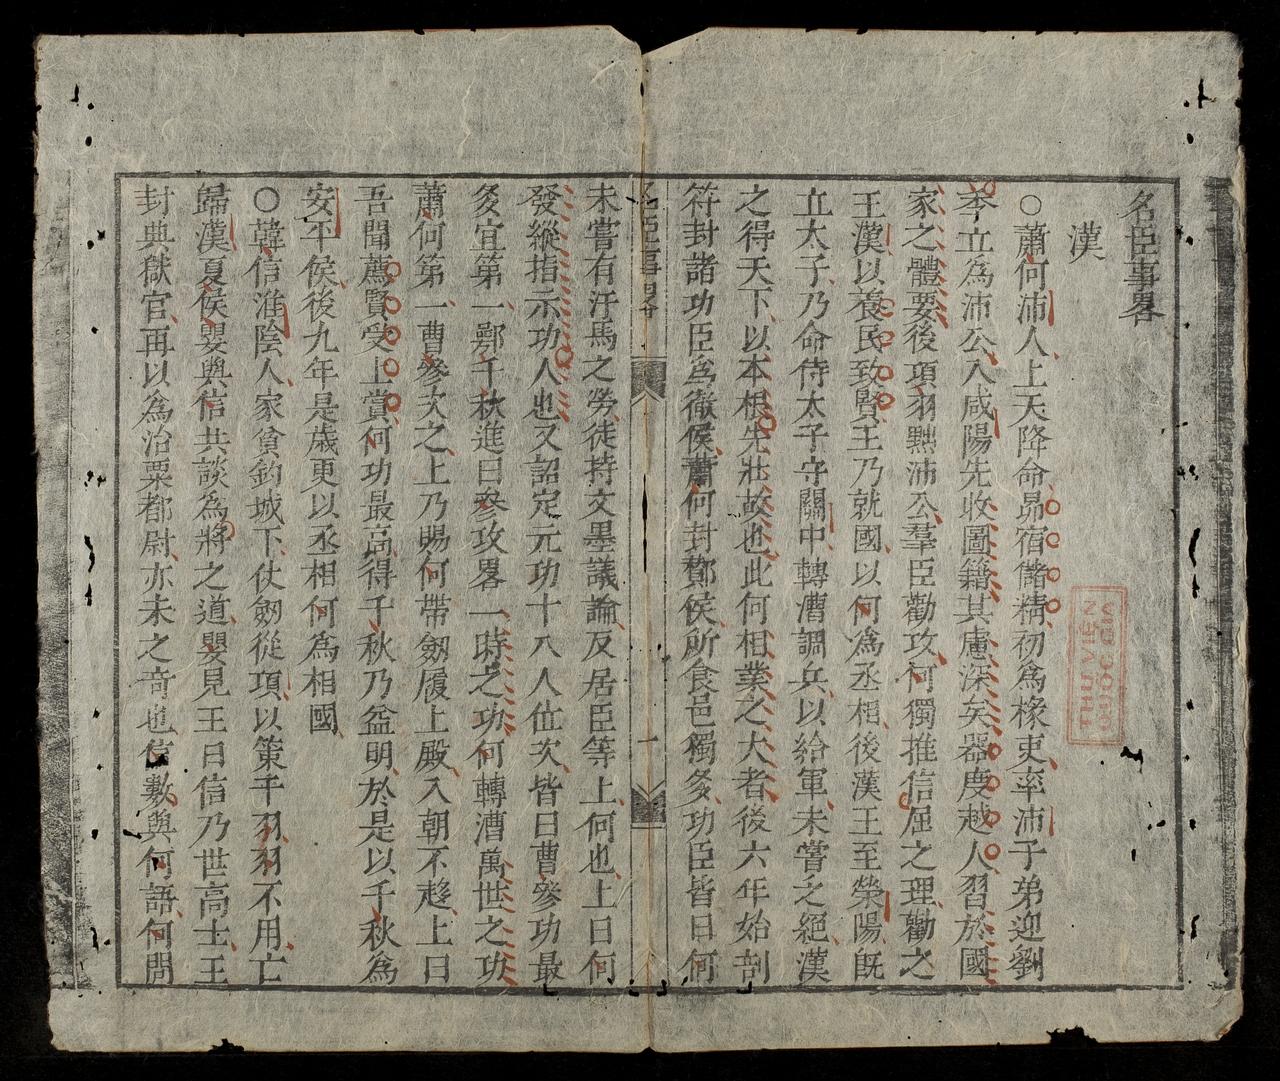 名臣事畧
漢
○蕭何沛人上天降命昴宿儲精初為椽吏率沛子弟迎劉
季立為沛公入咸陽先收圖籍其慮深矣器度越人習於國
家之體要後項羽黜沛公羣臣勸攻何獨推信屈之理勸之
王漢以養民致賢王乃就國以何為丞相後漢王至滎陽既
立太子乃命侍太子守關中轉漕調兵以給軍未嘗之絕漢
之得天下以本根先壯故也此何相業之大者後六年始剖
符封諸功臣為徹侯蕭何封酇侯所食邑獨多功臣皆曰何
名臣事畧 一
未嘗有汗馬之勞徒持文墨議論反居臣等上何也上曰何
發縱指示功人也又詔定元功十八人位次皆曰曹參功最
多宜第一鄂千秋進曰參攻畧一時之功何轉漕萬世之功
蕭何第一曹參次之上乃賜何帶劔履上殿入朝不趍上曰
吾聞薦賢受上賞何功最高得千秋乃益明於是以千秋為
安平侯後九年是歲更以丞相何為相國
○韓信淮陰人家貧釣城下仗劔從項以策干羽羽不用亡
歸漢夏侯嬰與信共談為將之道嬰見王曰信乃世高士王
封典獄官再以為治粟都尉亦未之奇也信數與何語何問
THƯ VIỆN
QUỐC GIA